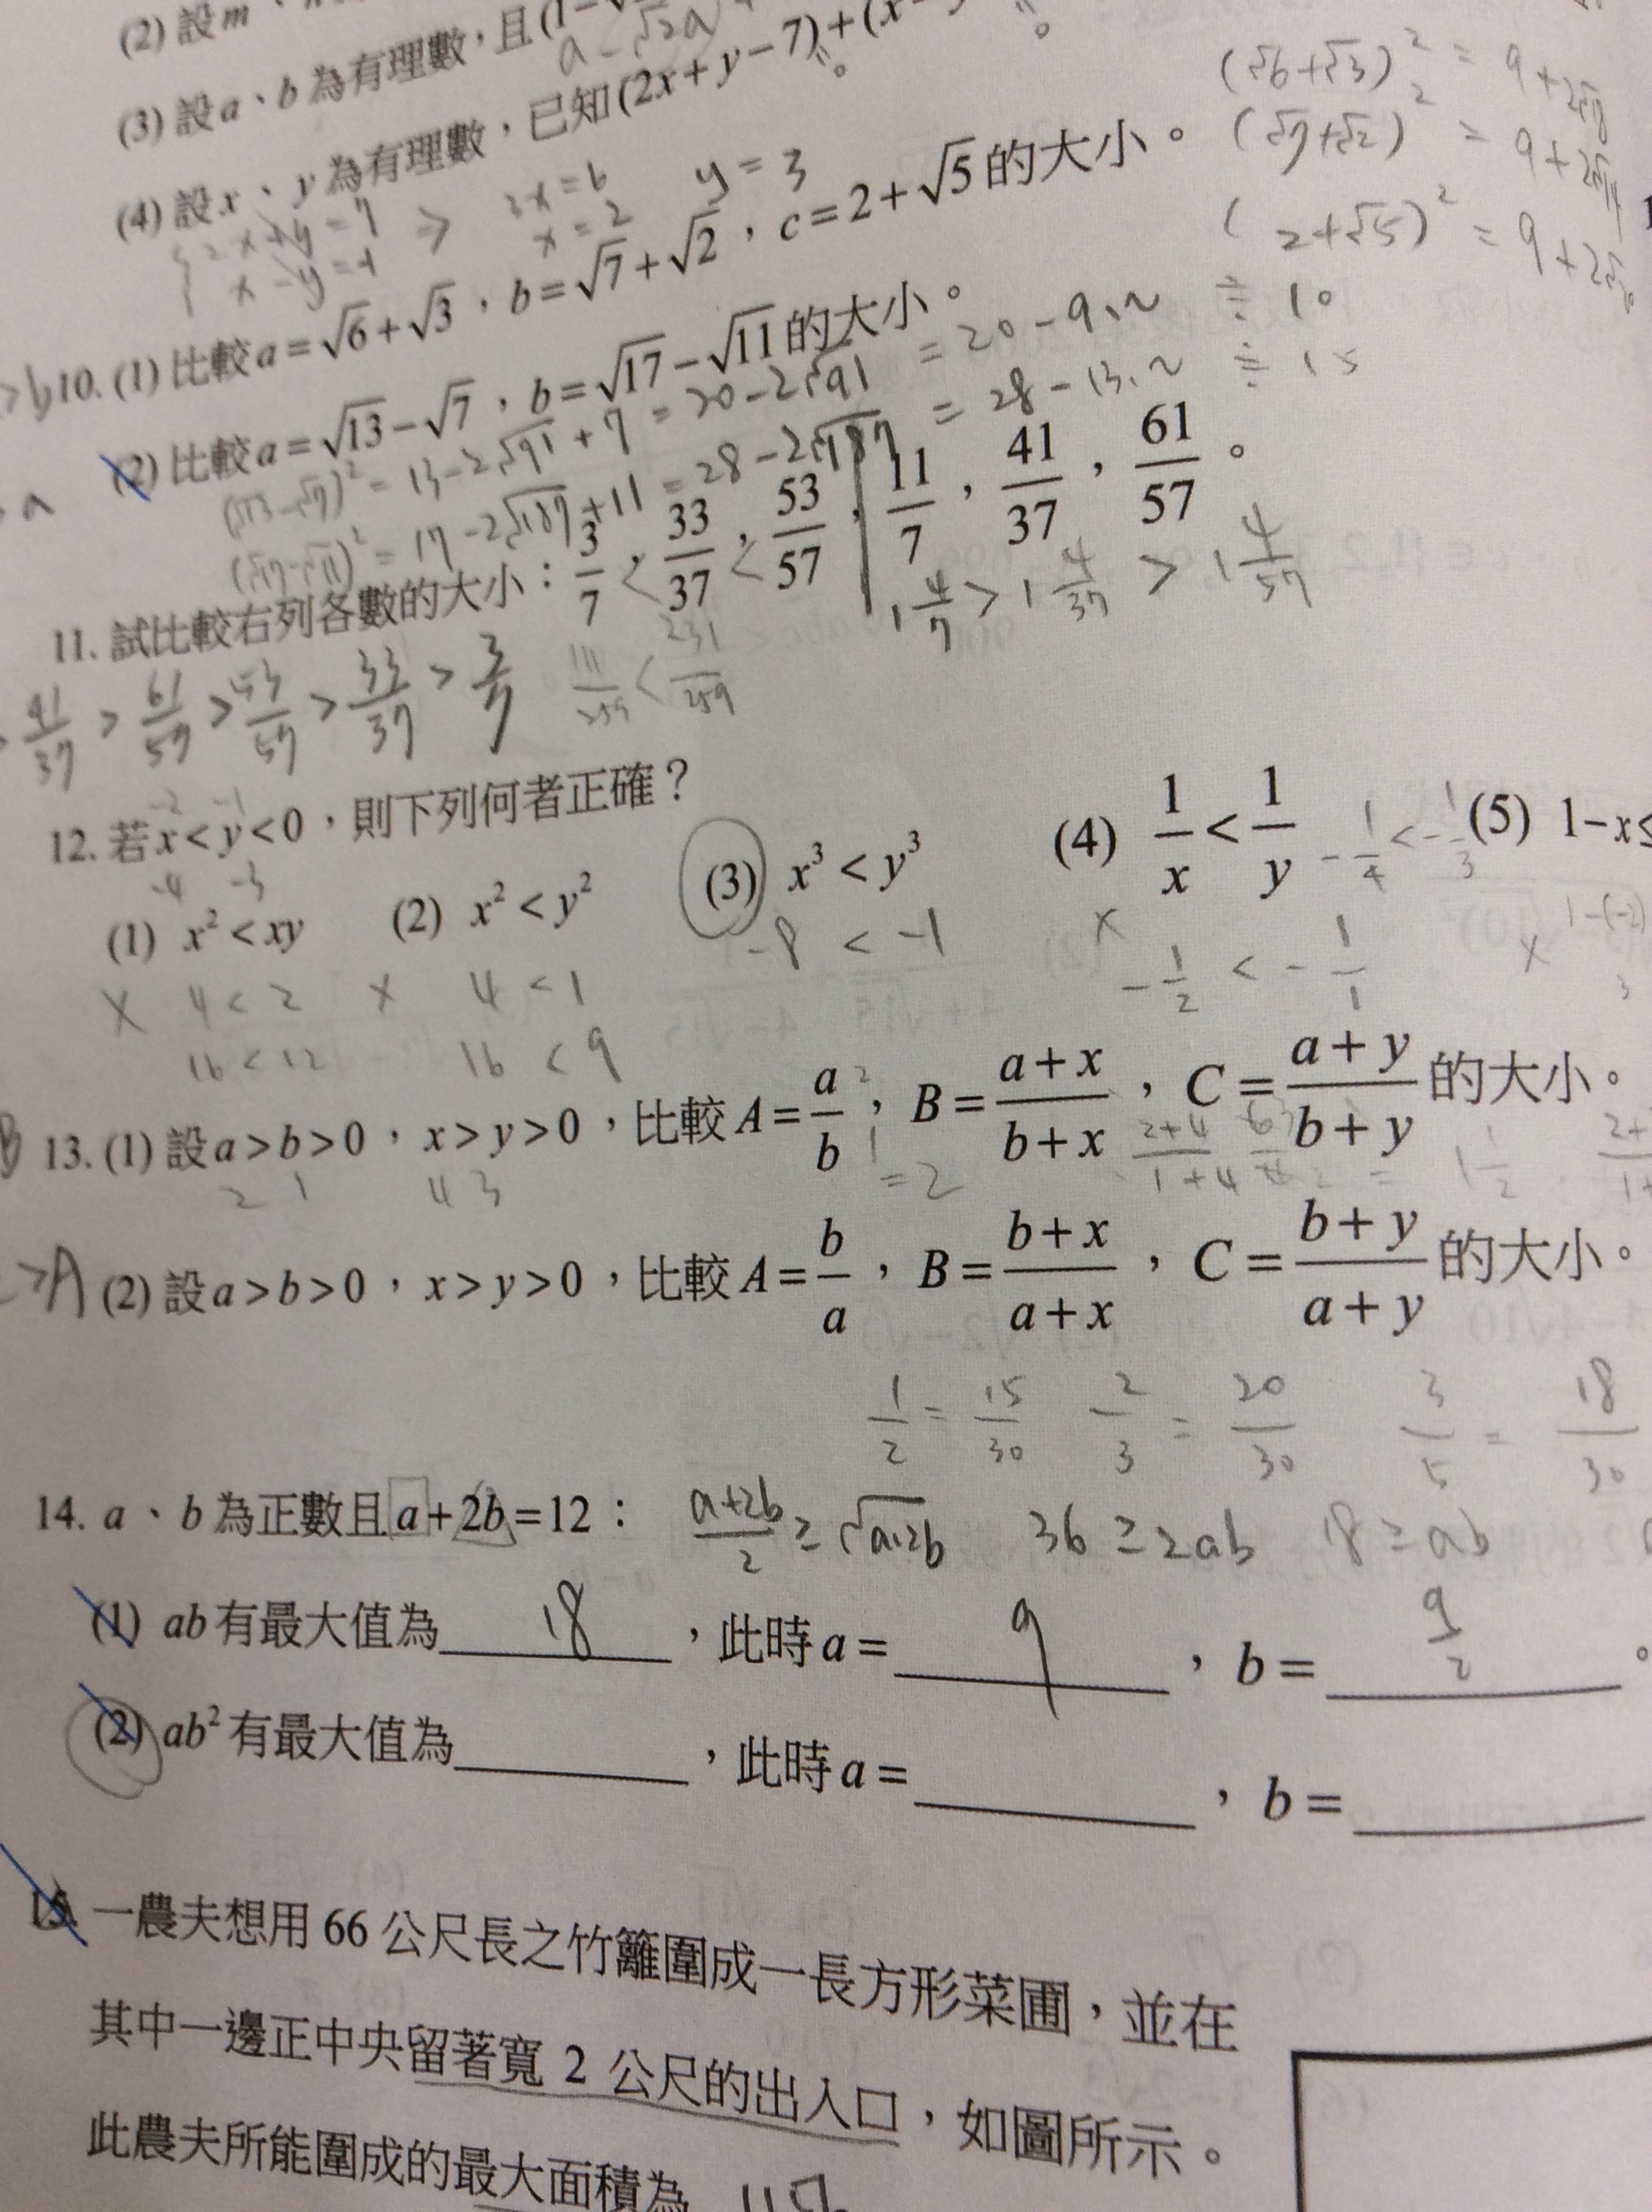 (2) 設m、
(3) 設a、b為有理數，且(1-
a-√2a
(4) 設x、y為有理數，已知(2x+y-7)+(x-
2x+y=7 ⇒ 3x=6 y=3
x-y=-1 x=2
(√6+√3)² = 9+2√18
(√7+√2)² = 9+2√14
(2+√5)² = 9+2√20
>b 10. (1) 比較a=√6+√3，b=√7+√2，c=2+√5的大小。
>a (2) 比較a=√13-√7，b=√17-√11的大小。
(√13-√7)² = 13-2√91+7 = 20-2√91 = 20-9.~ ≑ 10
(√17-√11)² = 17-2√187+11 = 28-2√187 = 28-13.~ ≑ 15
11. 試比較右列各數的大小：3/7 < 33/37 < 53/57，11/7，41/37，61/57。
1 4/7 > 1 4/37 > 1 4/57
> 41/37 > 61/57 > 53/57 > 33/37 > 3/7 111/259 < 231/259
12. 若x<y<0，則下列何者正確？
-2 -1
-4 -3
(1) x²<xy (2) x²<y² (3) x³<y³ (4) 1/x<1/y -1/4<-1/3 (5) 1-x≤
× 4<2 × 4<1 -8<-1 × -1/2<-1/1 × 1-(-2)
16<12 16<9 3
13. (1) 設a>b>0，x>y>0，比較A=a/b，B=(a+x)/(b+x)，C=(a+y)/(b+y)的大小。
2 1 4 3 2/1 =2 (2+4)/(1+4) = 1 1/2
>A (2) 設a>b>0，x>y>0，比較A=b/a，B=(b+x)/(a+x)，C=(b+y)/(a+y)的大小。
1/2 = 15/30 2/3 = 20/30 3/5 = 18/30
14. a、b為正數且a+2b=12： (a+2b)/2 ≥ √a·2b 36≥2ab 18≥ab
(1) ab有最大值為 18 ，此時a= 9 ，b= 9/2 。
(2) ab²有最大值為＿＿＿，此時a=＿＿＿，b=＿＿＿
15. 一農夫想用66公尺長之竹籬圍成一長方形菜圃，並在
其中一邊正中央留著寬 2 公尺的出入口，如圖所示。
此農夫所能圍成的最大面積為